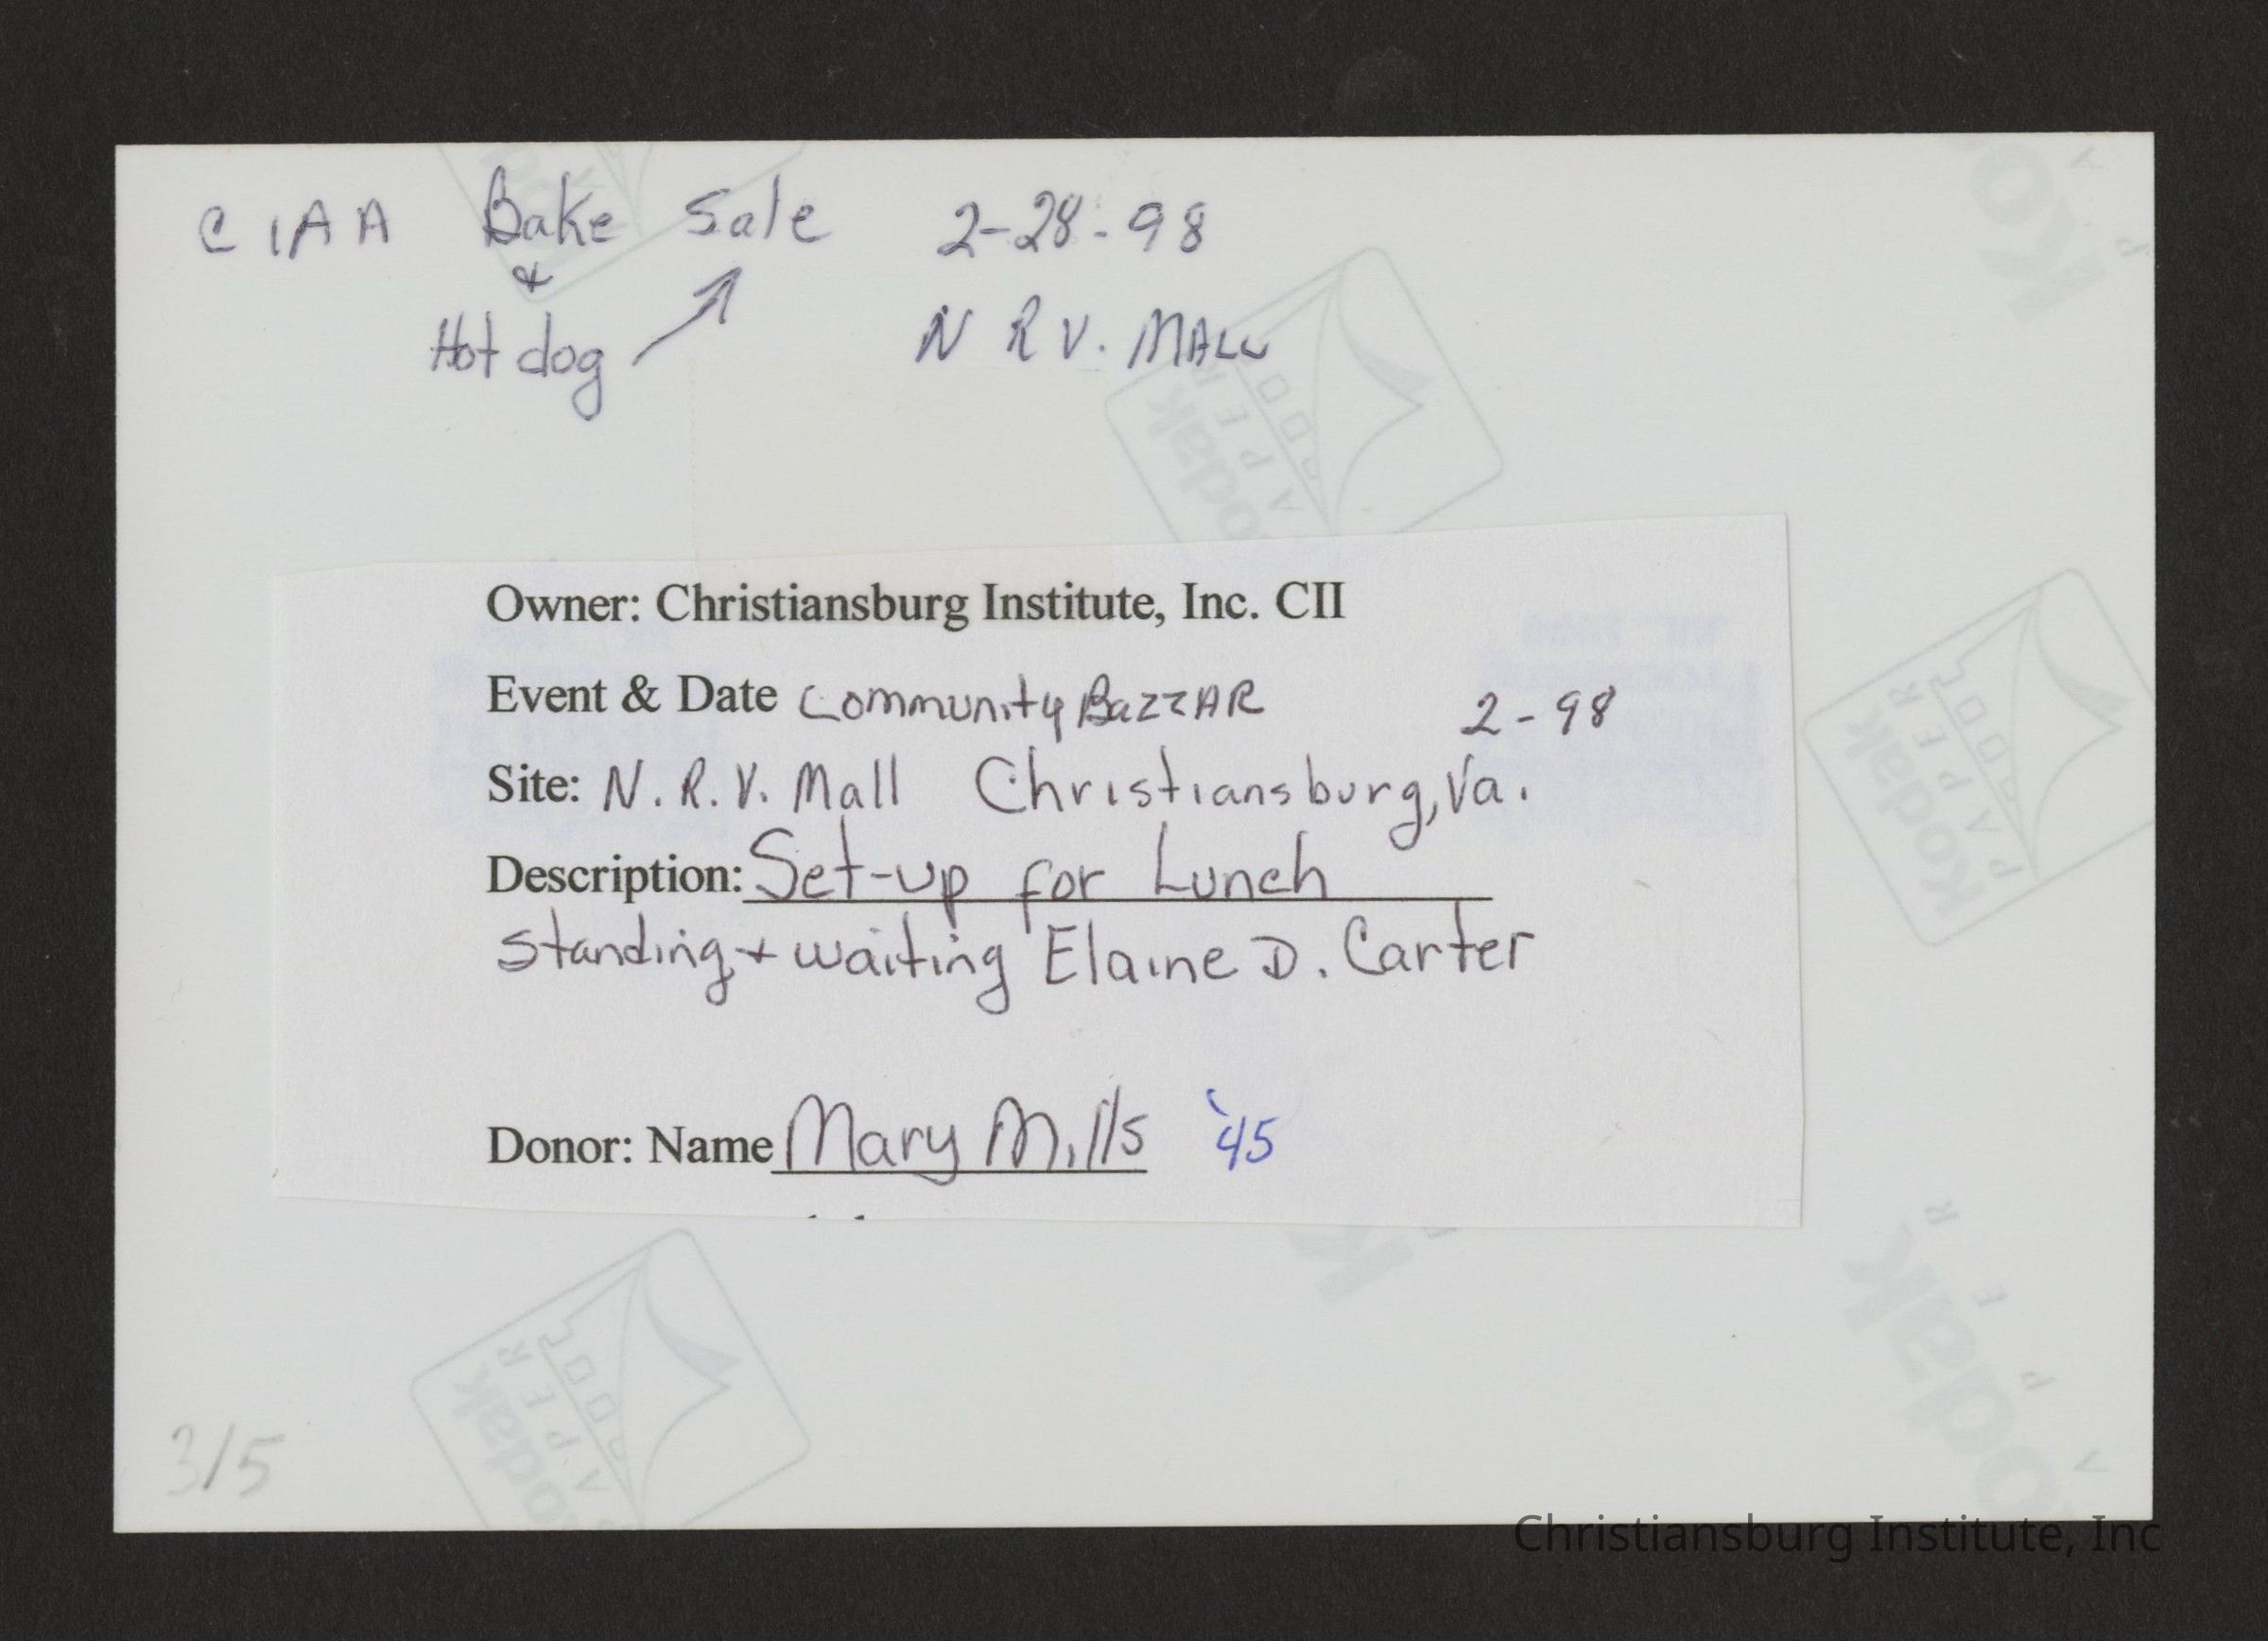 CIAA Bake Sale 2-28-98
&
Hot dog N R V. MALL
Owner: Christiansburg Institute, Inc. CII
Event & Date Community BazzAR 2-98
Site: N.R.V. Mall Christiansburg, Va.
Description: Set-up for Lunch
standing + waiting Elaine D. Carter
Donor: Name Mary Mills '45
3/5
Christiansburg Institute, Inc
Kodak
PAPER